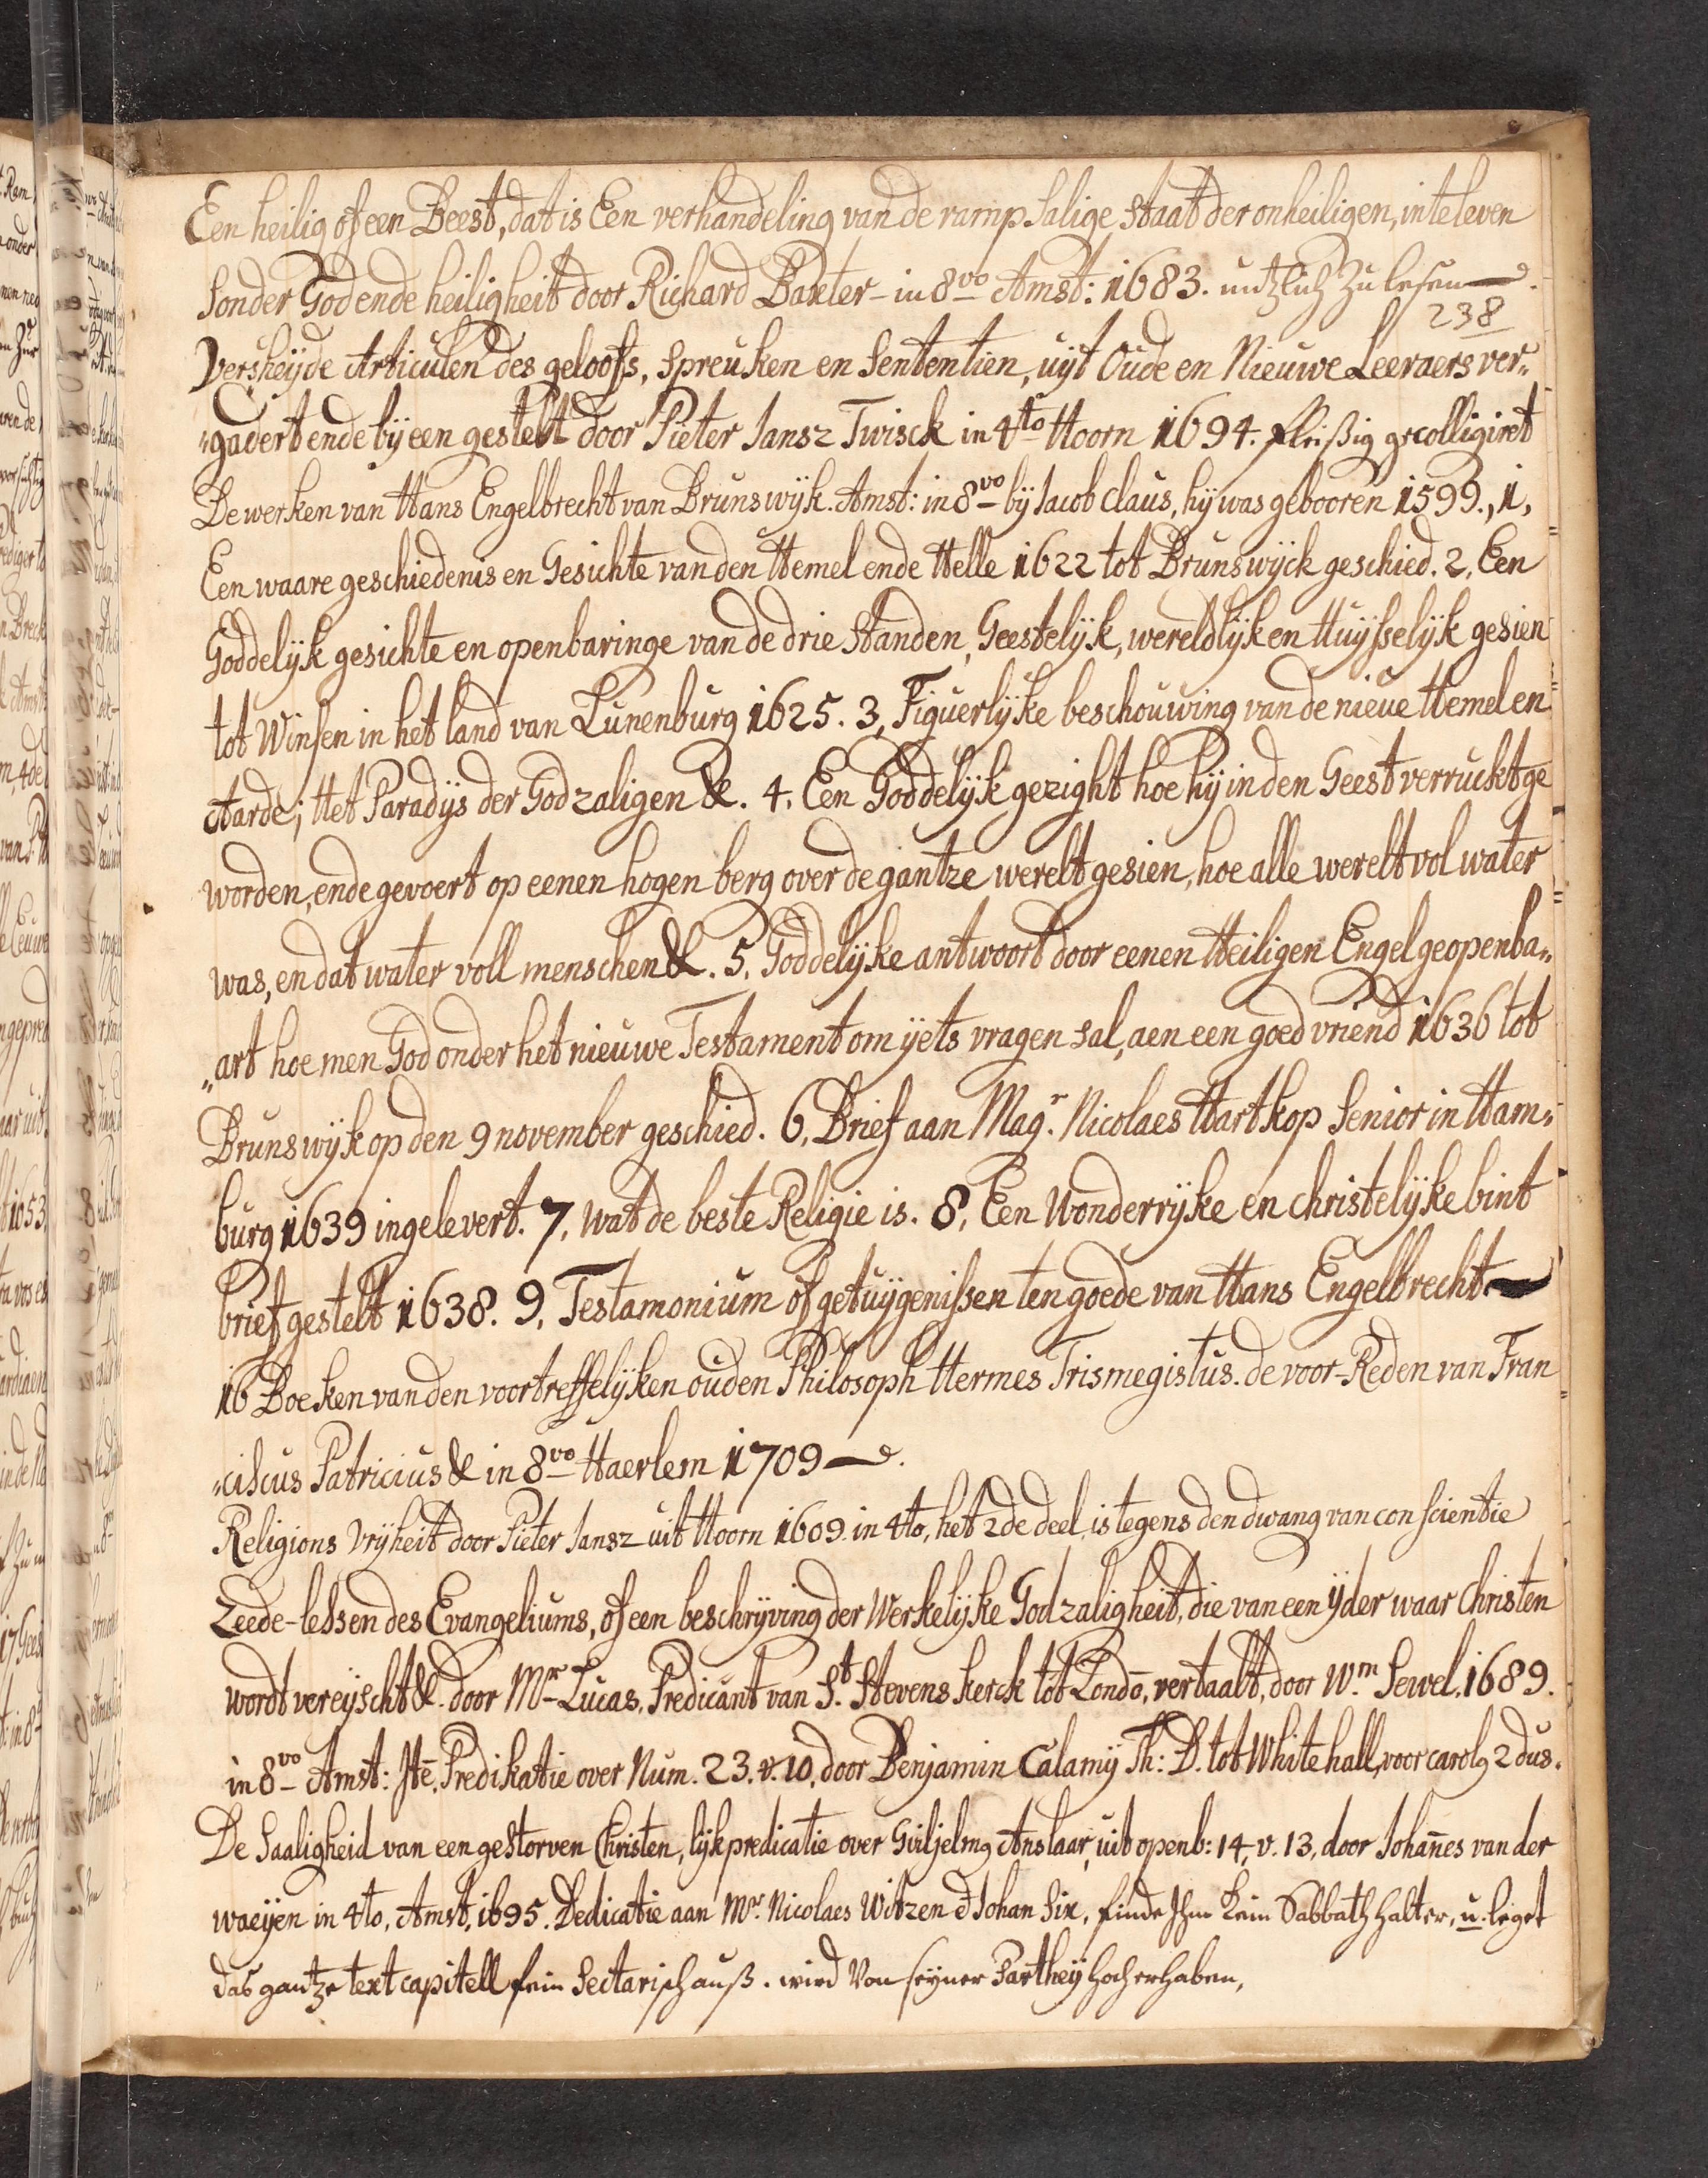 Een heilig of een Beest, dat is Een verhandeling van de rampsalige staat der onheiligen, in te leven
sonder God ende heiligheit door Richard Baxter - in 8vo Amst: 1683. nutzlich zu lesen.
238
Versheijde Articulen des geloofs, Spreuken en Sententien, uijt Oude en Nieuwe Leeraers ver„
„gadert ende bij een gestelt door Pieter Jansz Twisck in 4to Hoorn 1694. fleißig gecolligiret
De werken van Hans Engelbrecht van Brunswijk. Amst: in 8vo bij Jacob Claus, hij was gebooren 1599., 1,
Een waare geschiedenis en Gesichte van den Hemel ende Helle 1622 tot Brunswijck geschied. 2, Een
Goddelijk gesichte en openbaringe van de drie Standen, Geestelijk, wereldlijk en Huijsselijk gesien
tot Winsen in het land van Lunenburg 1625. 3, Figuerlijke beschouwing van de nieue Hemel en
Aarde; Het Paradijs der Godzaligen &. 4. Een Goddelijk gezight hoe hij in den Geest verruckt ge
worden, ende gevoert op eenen hogen berg over de gantze werelt gesien, hoe alle werelt vol water
was, en dat water voll menschen &. 5, Goddelijke antwoort door eenen Heiligen Engel geopenba„
„art hoe men God onder het nieuwe Testament om ijets vragen sal, aen een goed vriend 1636 tot
Brunswijk op den 9 november geschied. 6, Brief aan Magr. Nicolaes Hartkop Senior in Ham„
burg 1639 ingelevert. 7, wat de beste Religie is. 8, Een Wonderrijke en christelijke bint
brief gestelt 1638. 9, Testamonium of getuijgenissen ten goede van Hans Engelbrecht
16 Boeken van den voortreffelijken ouden Philosoph Hermes Trismegistus. de voor-Reden van Fran
„ciscus Patricius & in 8vo Haerlem 1709.
Religions Vrijheit door Pieter Jansz uit Hoorn 1609. in 4to, het 2de deel, is tegens den dwang van conscientie
Zeede-lessen des Evangeliums, of een beschrijving der Werkelijke Godzaligheit, die van een ijder waar Christen
wordt vereijscht &. door Mr Lucas, Predicant van St. Stevens kerck tot Londō, vertaalt, door Wm. Sewel, 1689.
in 8vo Amst: Jtē. Predikatie over Num. 23. v. 10, door Benjamin Calamij Th: D. tot Whitehall, voor carolg 2 dus.
De Saaligheid van een gestorven Christen, lijkpredicatie over Guiljelmg Anslaar, uit openb: 14, v. 13, door Johan̄es van der
waeijen in 4to, Amst, 1695. Dedicatie aan Mr. Nicolaes Witzen & Johan Six, finde Ihm kein Sabbath halter, u. leget
das gantze text capitell fein Sectarisch auß. wird von seyner Parthey hoch erhaben,